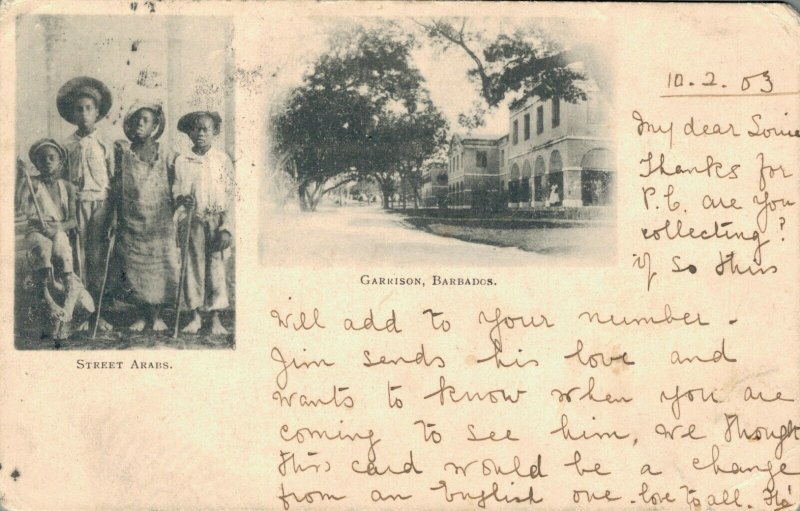 STREET ARABS.
GARRISON, BARBADOS.
10.2.03
My dear Louie
Thanks for
P.C. are you
collecting?
if so this
will add to your number.
Jim sends his love and
wants to know when you are
coming to see him, we thought
this card would be a change
from an English one. love to all.